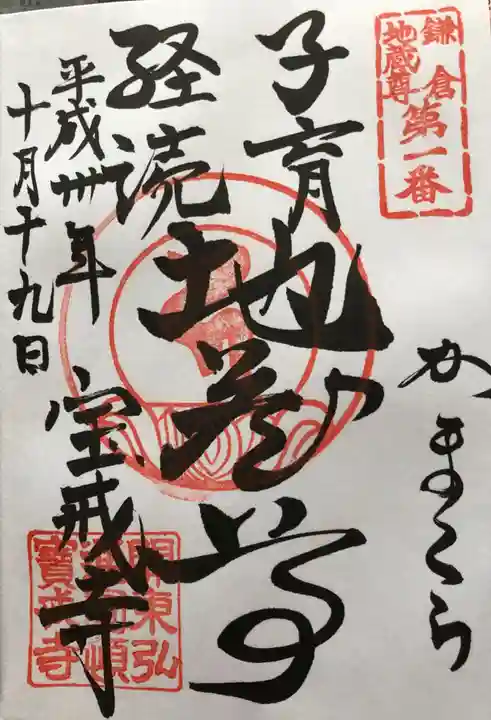 鎌倉
地蔵尊
第一番
かまくら
子育
経読
地蔵尊
平成卅年
十月十九日
宝戒寺
関東弘
寳戒寺